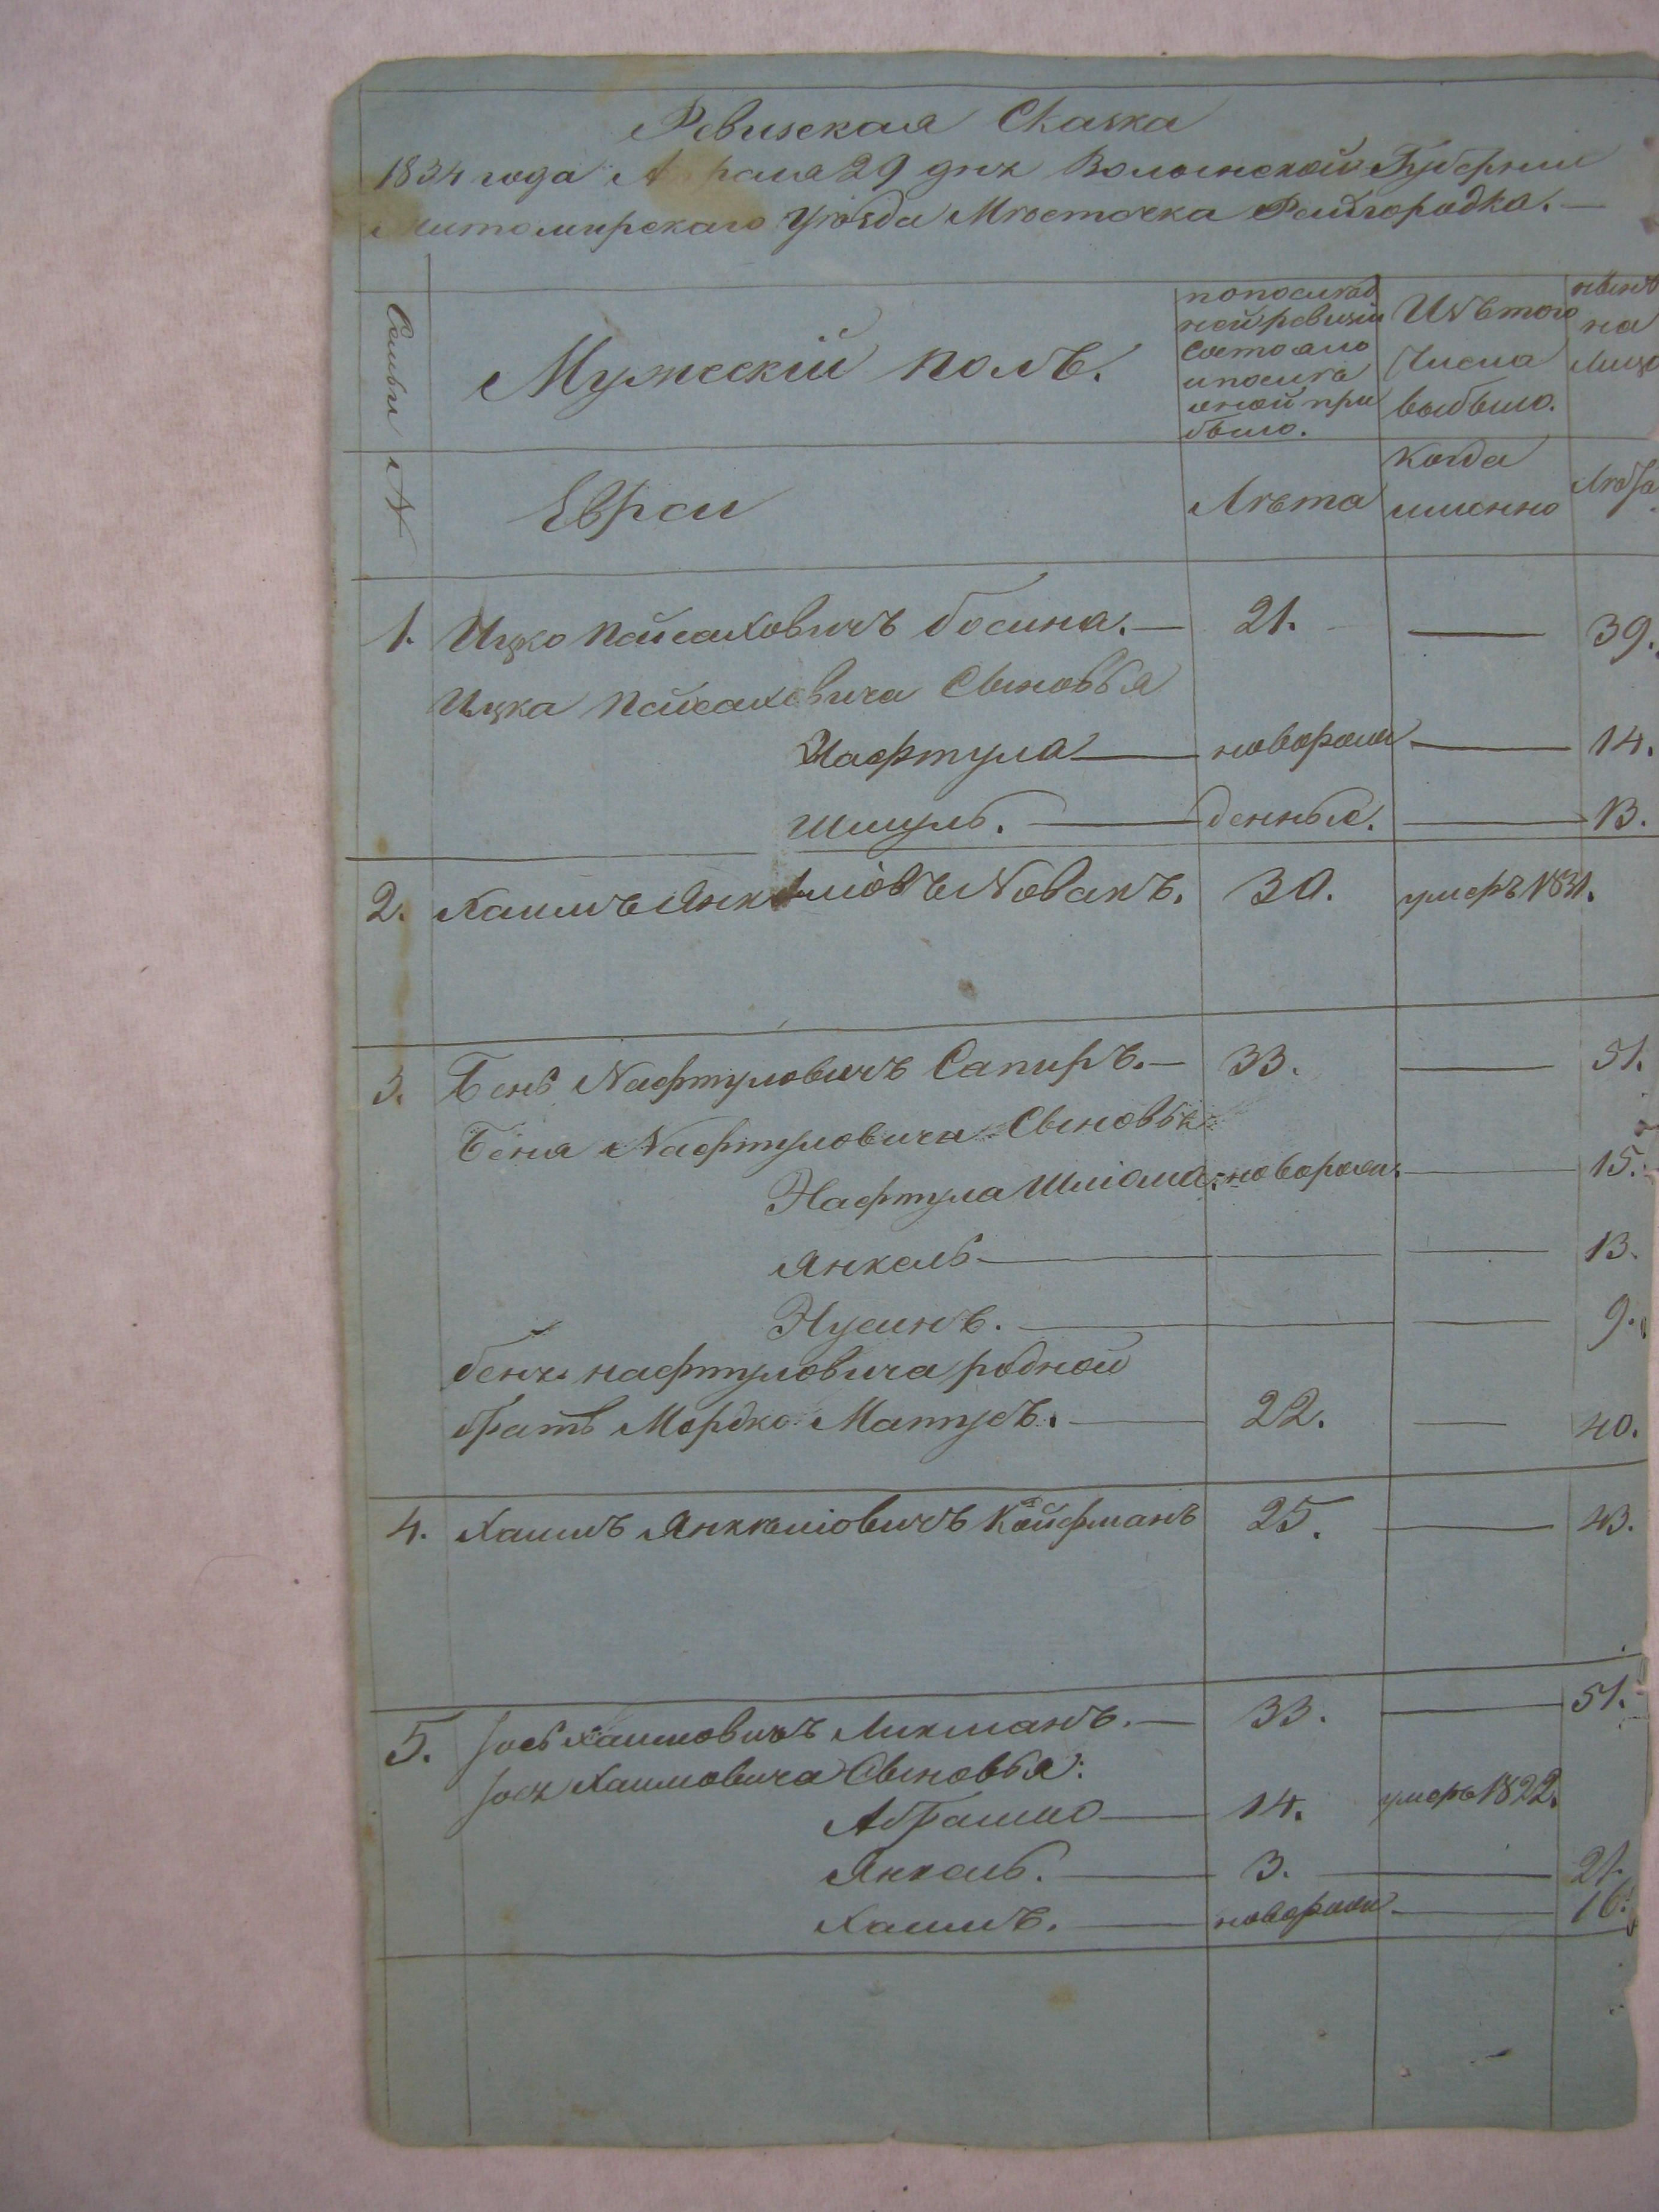 Ревизская Сказка
1834 года Апреля 29 дня Волынской Губернии
Житомирскаго Уѣзда Мѣсточка Райгородка.—
Семьи №
Мужескій полъ.
по послѣд
ней ревизіи
состояло
и послѣ
оной при
было.
Изъ того
числа
выбыло.
нынѣ
на
лицо
Евреи
Лѣта
когда
именно
Лѣта
1. Ицко Пайсаховичъ Босина.— 21. — 39.
Ицка Пайсаховича Сыновья
Нафтула — новорож — 14.
Шмуль. — денные. — 13.
2. Хаимъ Янкеліовъ Новакъ. 30. умеръ 1831.
3. Бень Нафтуловичъ Сапиръ.— 33. — 51.
Беня Нафтуловича Сыновья
Нафтула Шліома. новорож. — 15.
Янкель — 13.
Нусинъ. — 9.
Беня Нафтуловича родной
братъ Мордко Матусъ. — 22. — 40.
4. Хаимъ Янкеліовичъ Койфманъ 25. — 43.
5. Іось Хаимовичъ Ликманъ.— 33. — 51.
Іося Хаимовича Сыновья:
Абрамко — 14. умеръ 1822.
Янкель. — 3. — 21.
Хаимъ. — новорож — 16.